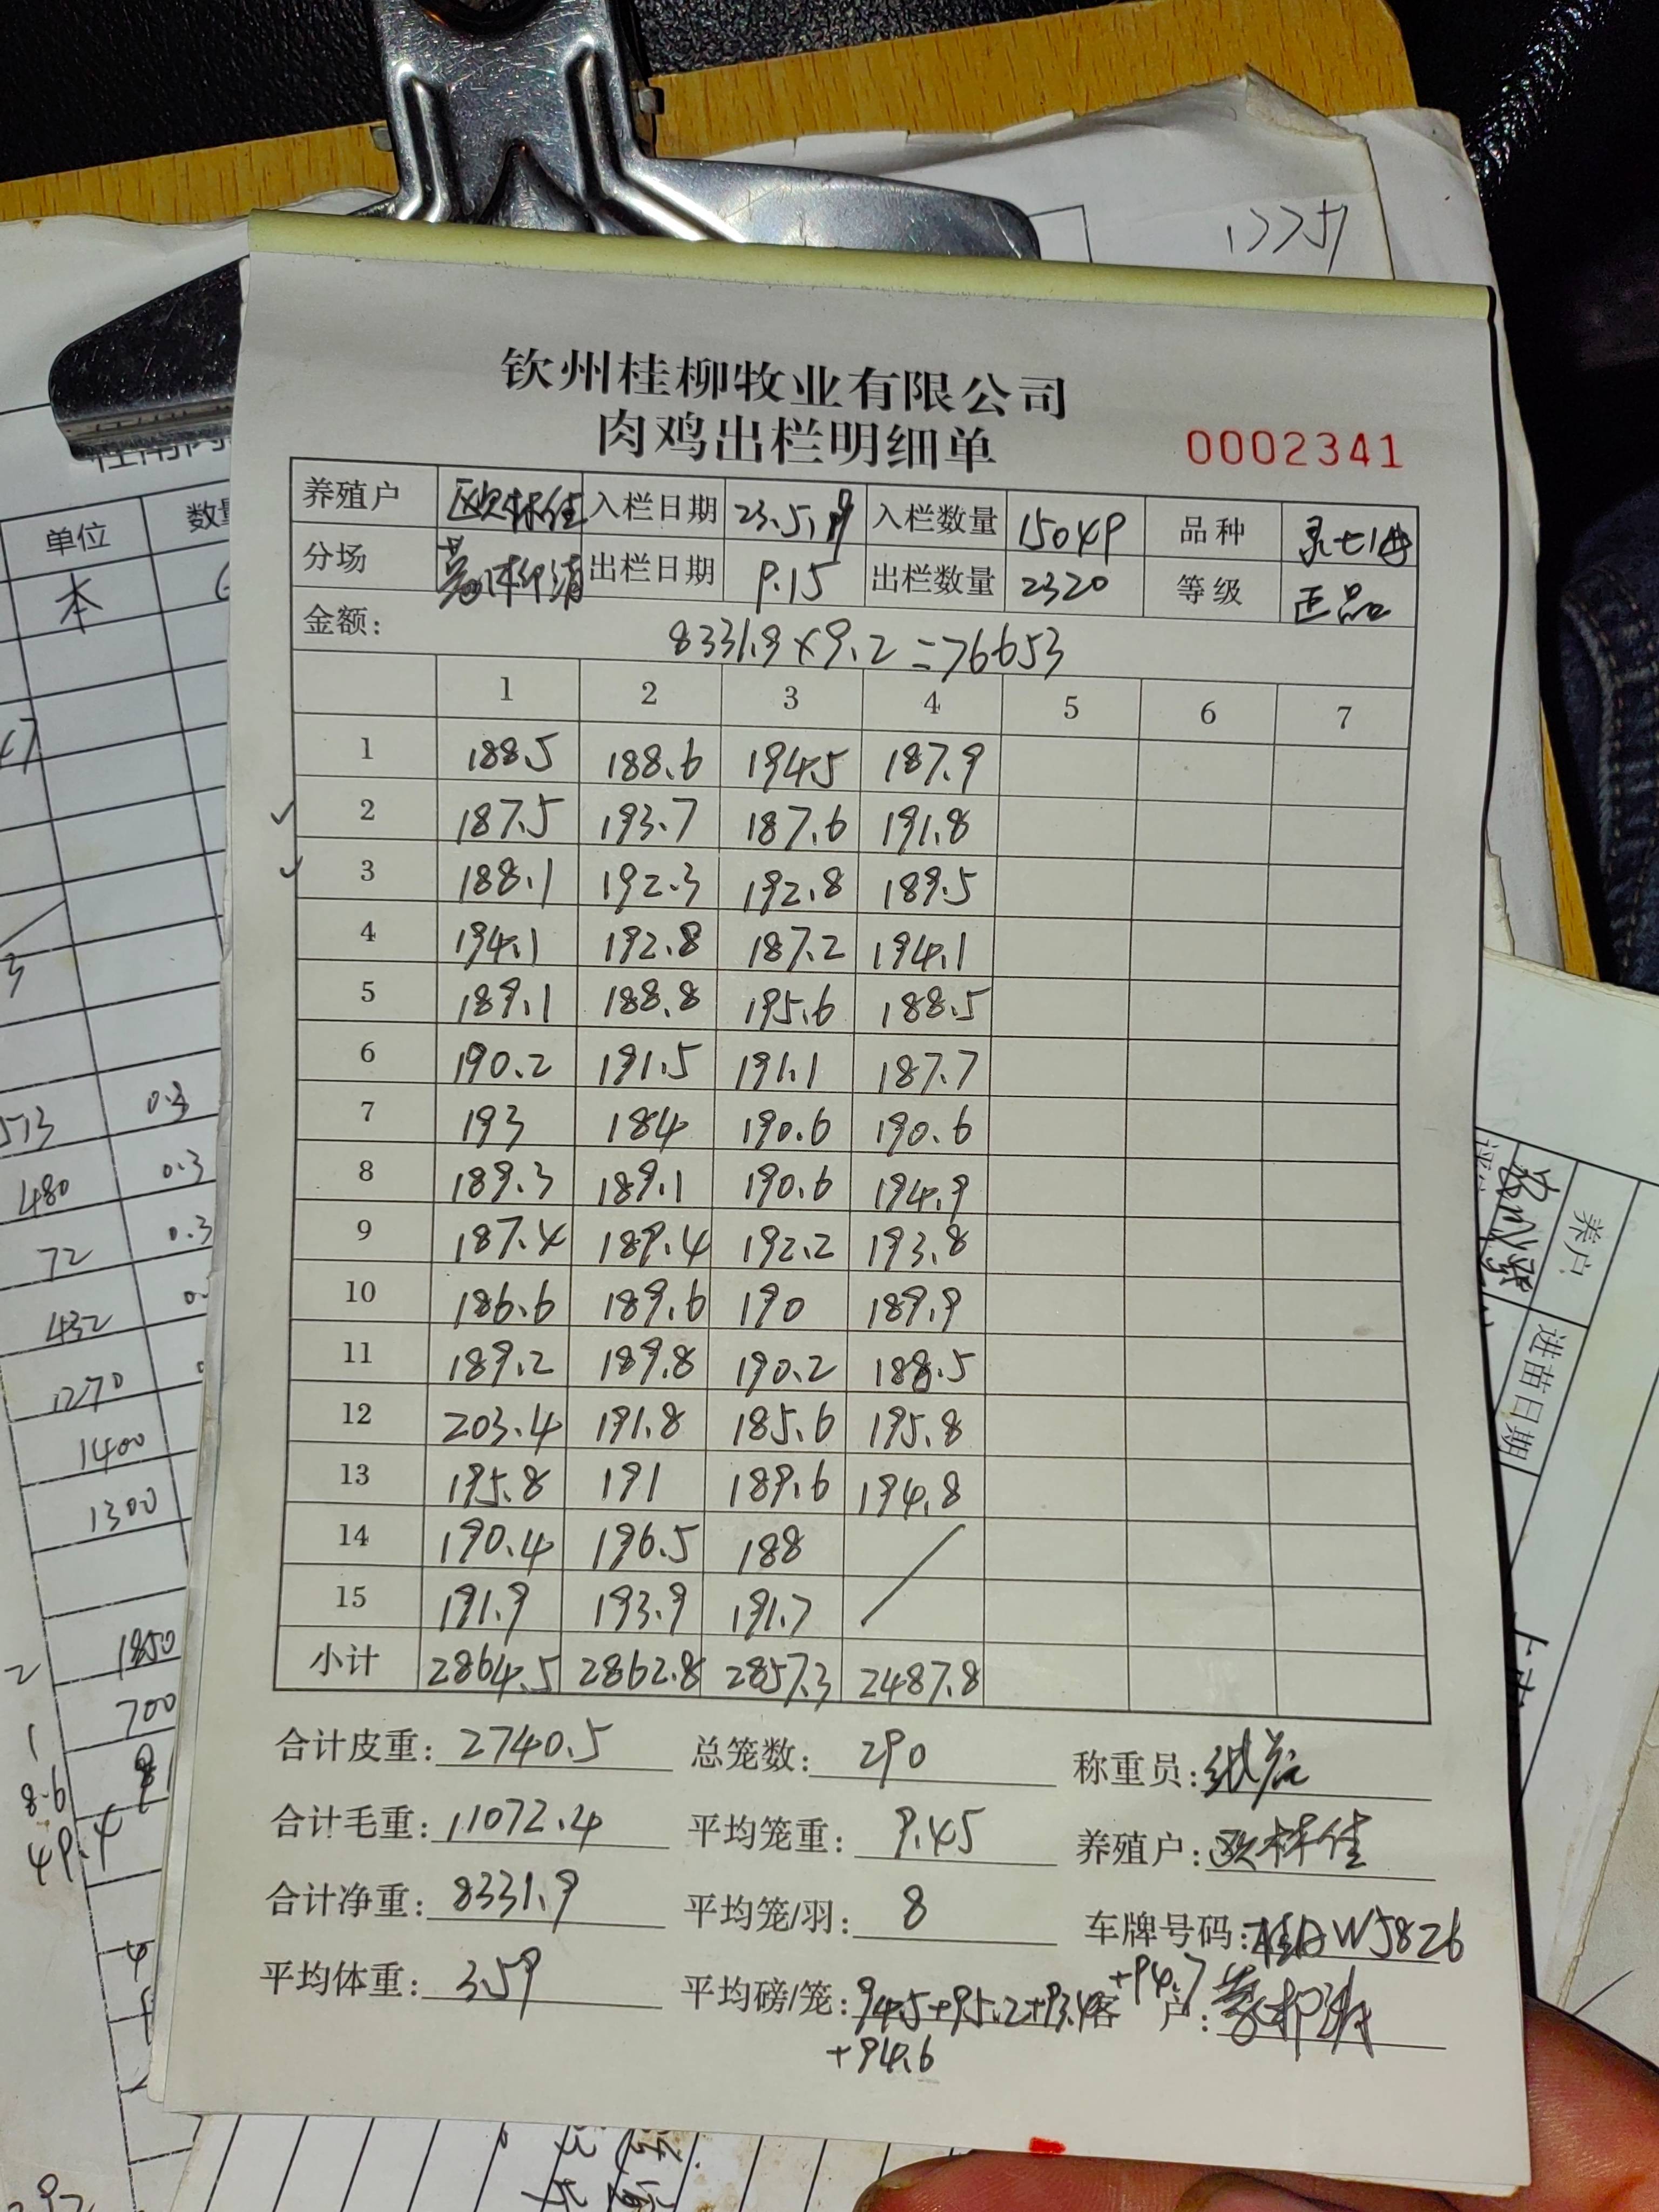 17757
钦州桂柳牧业有限公司
肉鸡出栏明细单
0002341
养殖户 欧林佳 入栏日期 23.5.19 入栏数量 15049 品种
分场 出栏日期 9.15 出栏数量 2320 等级 正品
金额: 8331.9×9.2=76653
1 2 3 4 5 6 7
1 188.5 188.6 194.5 187.9
2 187.5 193.7 187.6 191.8
3 188.1 192.3 192.8 189.5
4 194.1 192.8 187.2 194.1
5 189.1 188.8 195.6 188.5
6 190.2 191.5 191.1 187.7
7 193 184 190.6 190.6
8 189.3 189.1 190.6 194.9
9 187.4 189.4 192.2 193.8
10 186.6 189.6 190 189.9
11 189.2 189.8 190.2 188.5
12 203.4 191.8 185.6 195.8
13 195.8 191 189.6 194.8
14 190.4 196.5 188
15 191.9 193.9 191.7
小计 2864.5 2862.8 2857.3 2487.8
合计皮重: 2740.5 总笼数: 290 称重员:
合计毛重: 11072.4 平均笼重: 9.45 养殖户: 欧林佳
合计净重: 8331.9 平均笼/羽: 8 车牌号码: 桂AW5826
平均体重: 3.59 平均磅/笼: 94.5+95.2+93.4 +94.7 客户:
+94.6
单位 数量
本
573 0.3
480 0.3
72 0.3
432
1270
1400
1300
1850
700
8.6
49.4
养户
进苗日期